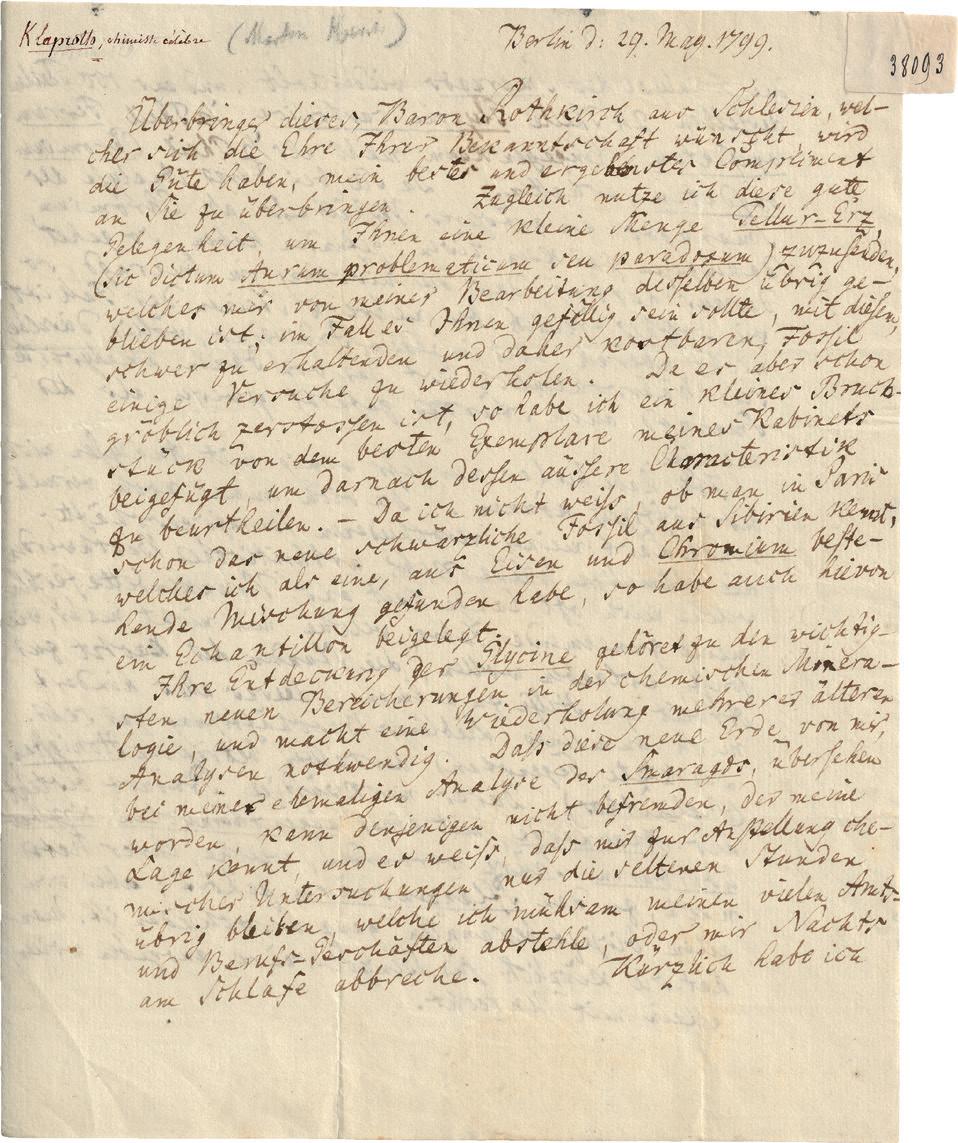 Klaproth, chimiste célèbre (Martin Heinr.)
38093
Berlin d: 29. May. 1799.
Überbringer dieses, Baron Rothkirch aus Schlesien, wel-
cher sich die Ehre Ihrer Bekanntschaft wünscht, wird
die Güte haben, mein bestes und ergebenstes Compliment
an Sie zu überbringen. Zugleich nutze ich diese gute
Gelegenheit, um Ihnen eine kleine Menge Tellur-Erz,
(sic dictum Aurum problematicum seu paradoxum) zuzusenden,
welches mir von meiner Bearbeitung desselben übrig ge-
blieben ist; im Fall es Ihnen gefällig sein sollte, mit diesem,
schwer zu erhaltenden und daher kostbaren, Fossil
einige Versuche zu wiederholen. Da es aber schon
gröblich zerstossen ist, so habe ich ein kleines Bruch-
stück von dem besten Exemplare meines Kabinets
beigefügt, um darnach dessen äussere Characteristik
zu beurtheilen. – Da ich nicht weiss, ob man in Paris
schon das neue schwärzliche Fossil aus Sibirien kennt,
welches ich als eine, aus Eisen und Chromium beste-
hende Mischung gefunden habe, so habe auch hievon
ein Echantillon beigelegt.
Ihre Entdeckung der Glycine gehöret zu den wichtig-
sten neuen Bereicherungen in der chemischen Minera-
logie, und macht eine Wiederholung mehrerer älteren
Analysen nothwendig. Dass diese neue Erde, von mir,
bei meiner ehemaligen Analyse des Smaragds, übersehen
worden, kann denjenigen nicht befremden, der meine
Lage kennt, und es weiss, dass mir zur Anstellung che-
mischer Untersuchungen nur die seltenen Stunden
übrig bleiben, welche ich mühsam meinen vielen Amts-
und Berufs-Geschäften abstehle, oder mir Nachts
am Schlafe abbreche. Kürzlich habe ich